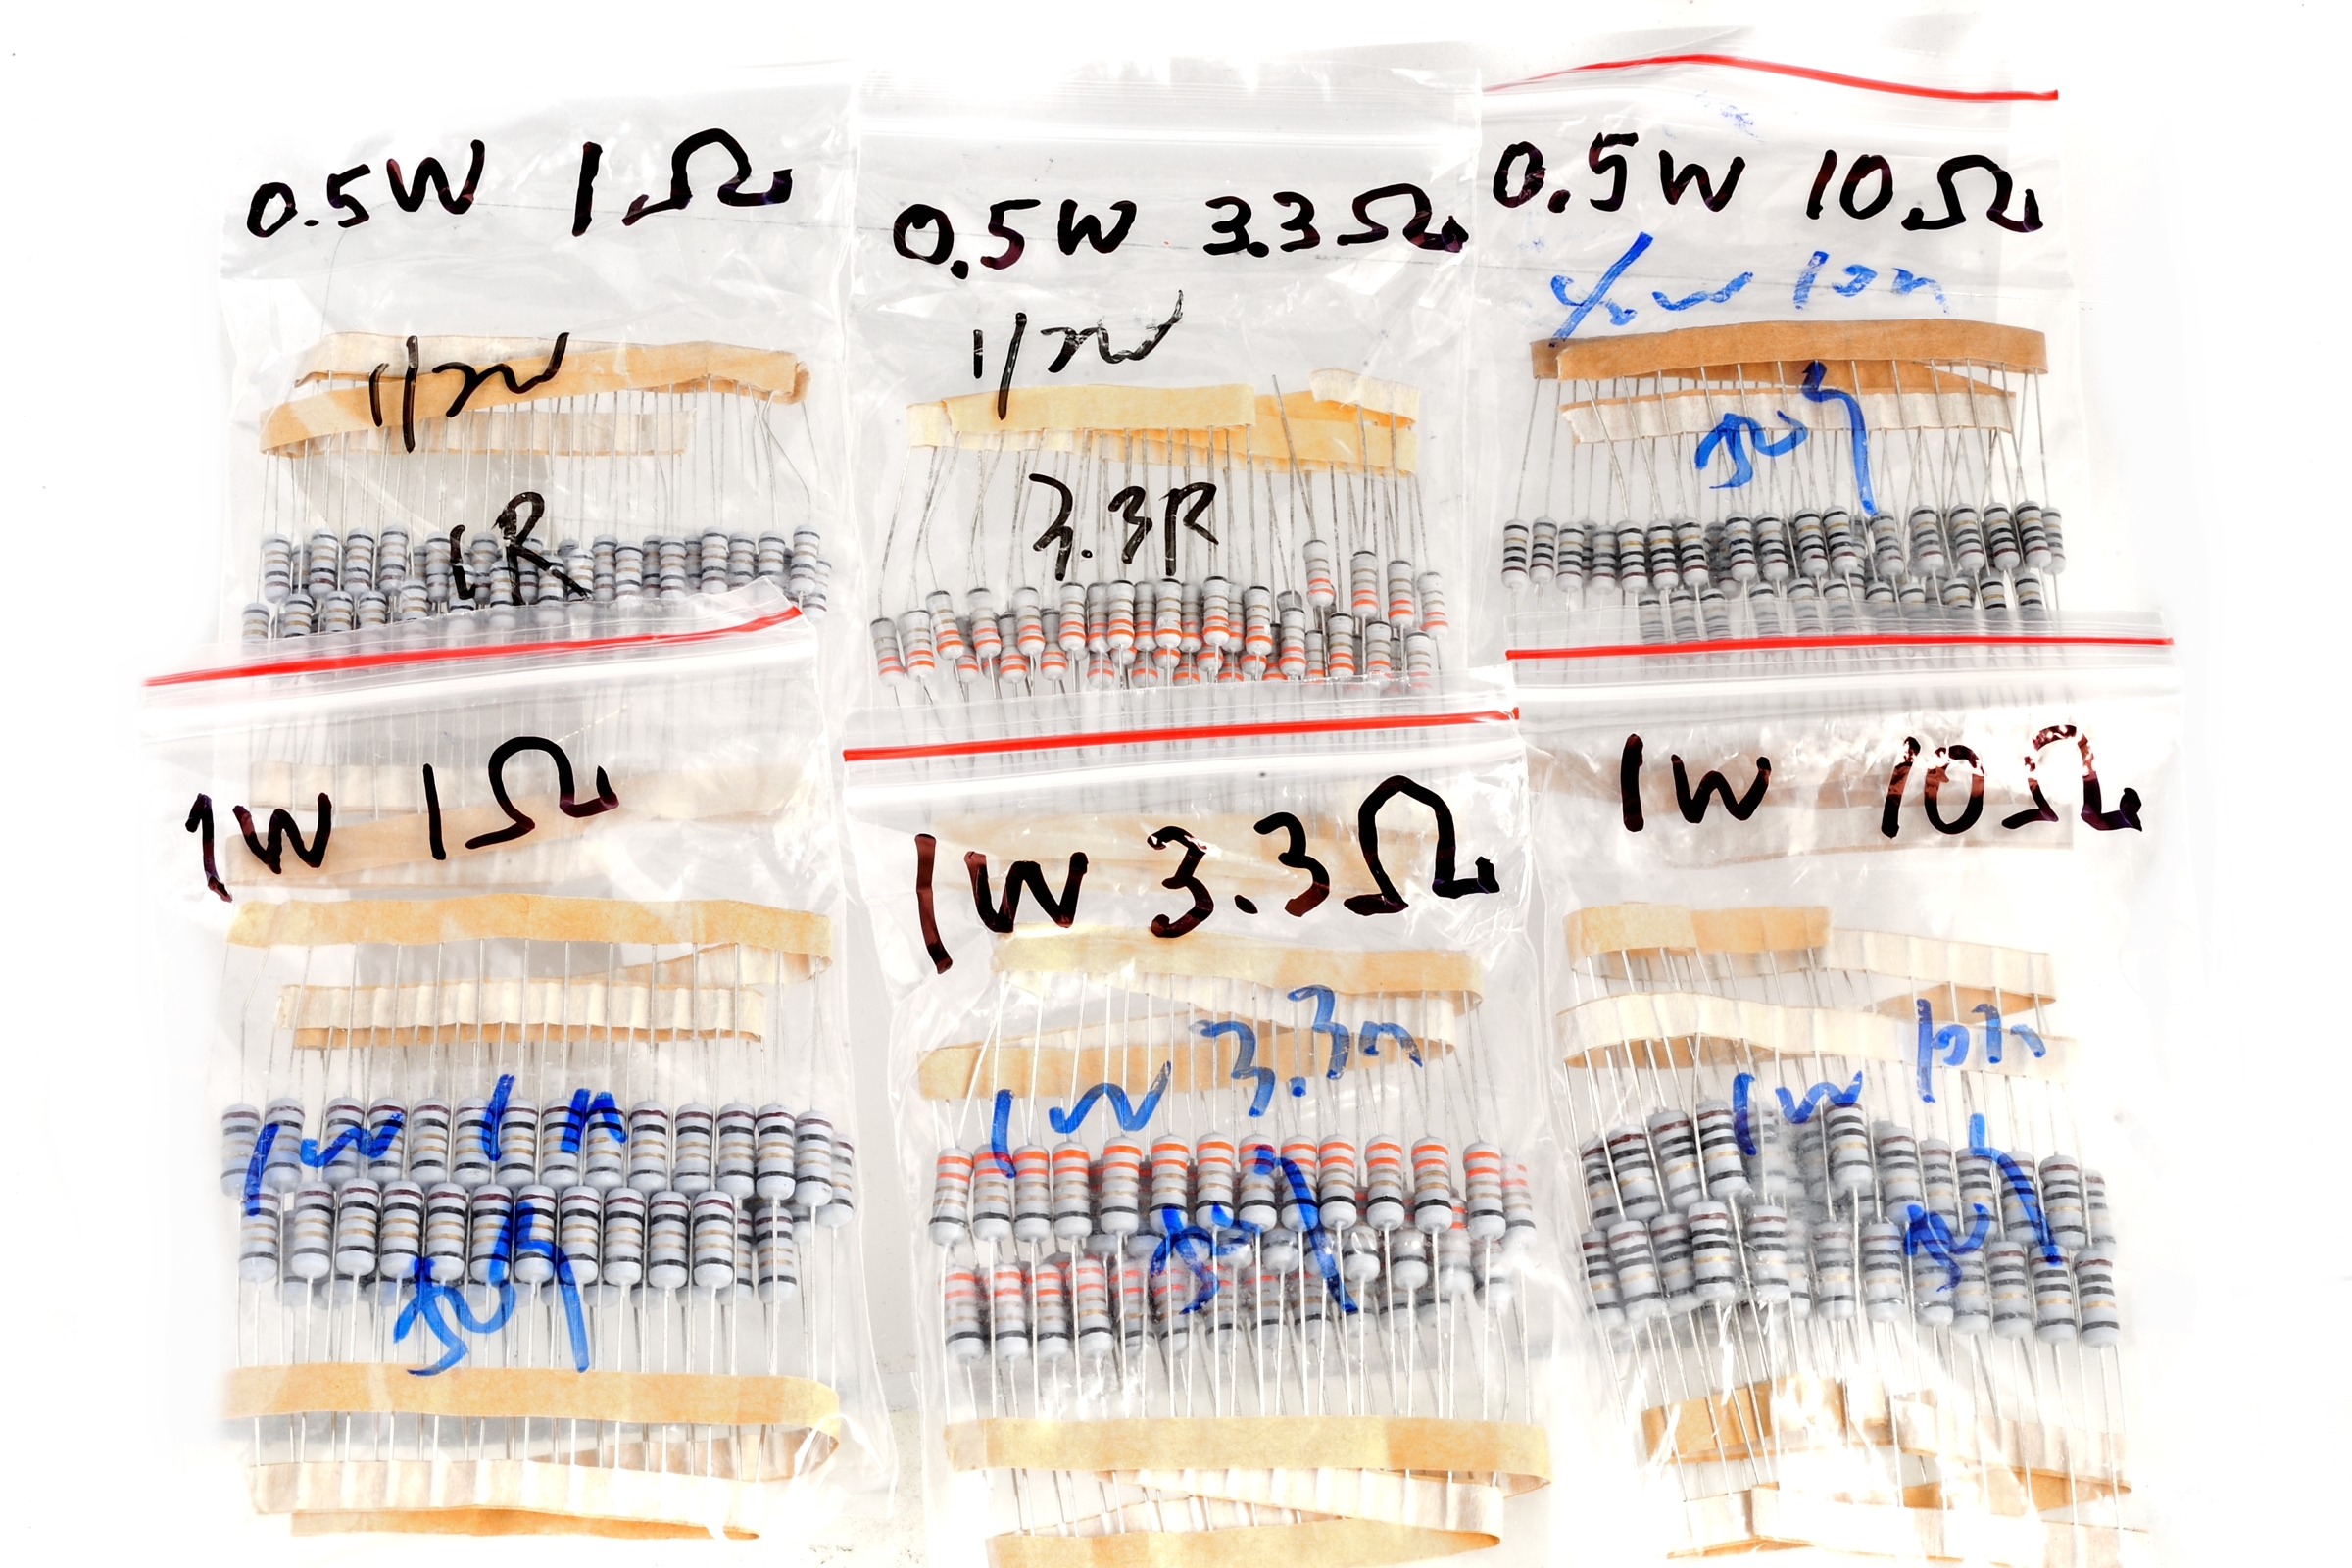 0.5W 1Ω
1/2W
1R
0.5W 3.3Ω
1/2W
3.3R
0.5W 10Ω
1/2W 10Ω
1W 1Ω
1W 1Ω
1W 3.3Ω
1W 3.3Ω
1W 10Ω
1W 10Ω